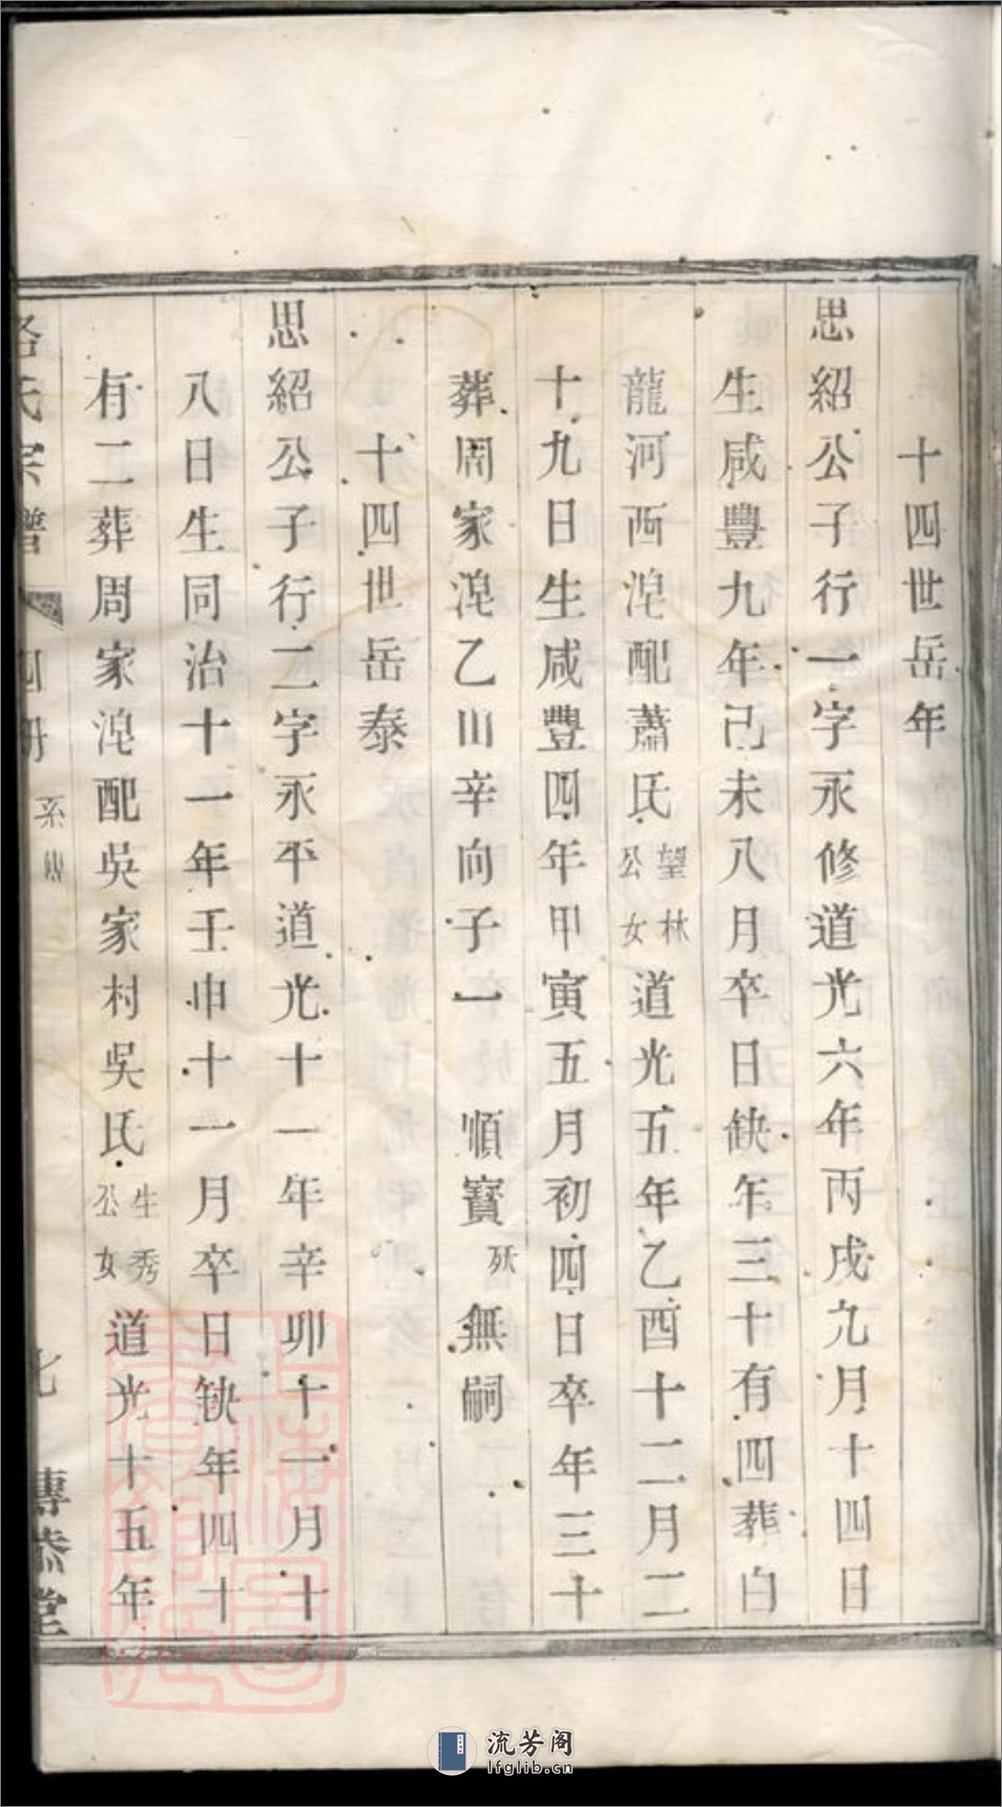 十四世岳年
思紹公子行一字永修道光六年丙戌九月十四日
生咸豐九年己未八月卒日缺年三十有四葬白
龍河西湼配蕭氏望林公女道光五年乙酉十二月二
十九日生咸豐四年甲寅五月初四日卒年三十
葬周家湼乙山辛向子一 順寶殀無嗣
十四世岳泰
思紹公子行二字永平道光十一年辛卯十一月十
八日生同治十一年壬申十一月卒日缺年四十
有二葬周家湼配吳家村吳氏生秀公女道光十五年
氏宗譜 四册 系 七 傳恭堂
上海圖書館藏
流芳阁
lfglib.cn